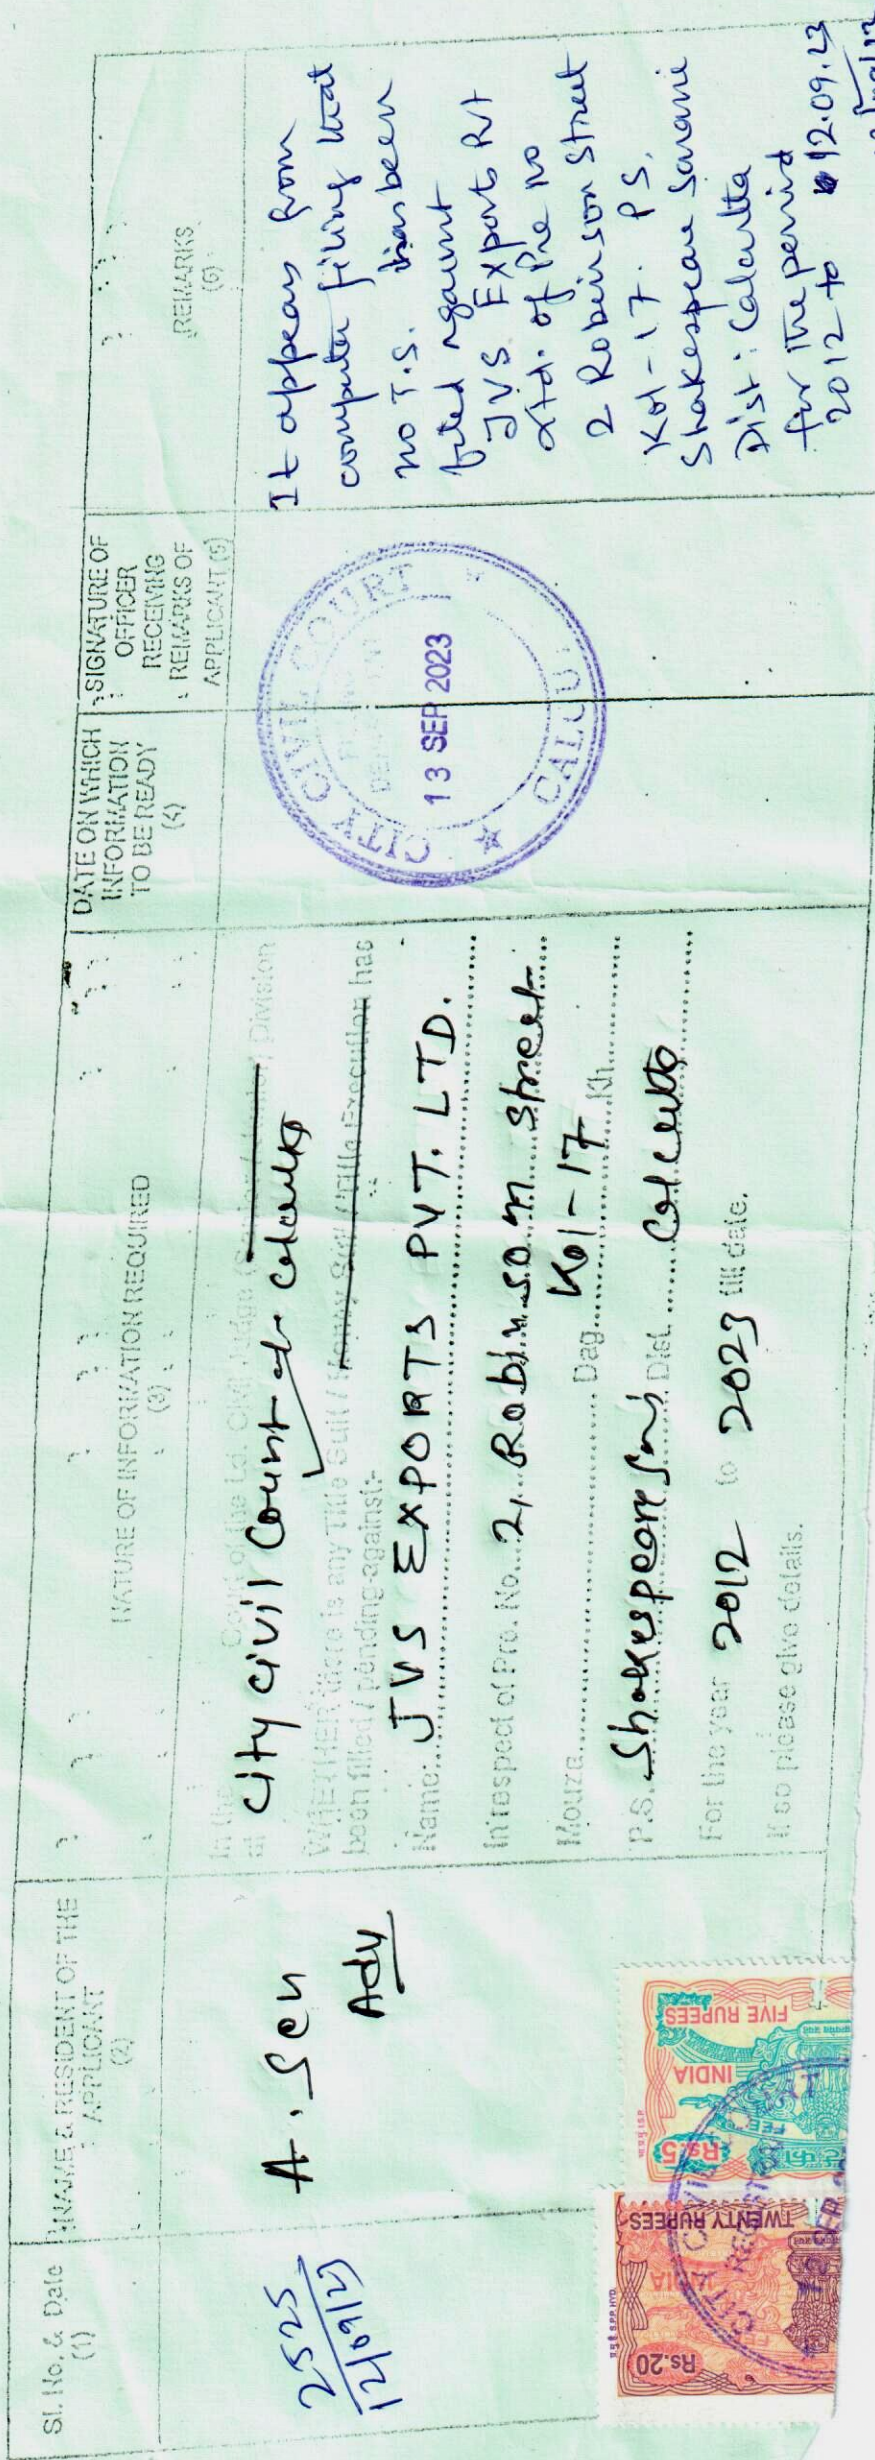 Sl. No. & Date
(1)
NAME & RESIDENT OF THE
APPLICANT
(2)
NATURE OF INFORMATION REQUIRED
(3)
DATE ON WHICH
INFORMATION
TO BE READY
(4)
SIGNATURE OF
OFFICER
RECEIVING
REMARKS OF
APPLICANT (5)
REMARKS
(6)
2525
12/09/23
A. Sen
Adv
In the Court of the Ld. Civil Judge Division
at City Civil Court at Calcutta
WHETHER there is any Title Suit / Money Suit / Title Execution has
been filled / pending against:-
Name: JVS EXPORTS PVT. LTD.
In respect of Pre. No. 2, Robinson Street
Mouza Dag Kol-17 Kh.
P.S. Shakespeare Dist. Calcutta
For the year 2012 to 2023 till date.
If so please give details.
CITY CIVIL COURT
13 SEP 2023
It appears from
computer filing that
no T.S. has been
filed against
JVS Exports Pvt
Ltd. of Pre no
2 Robinson Street
Kol-17. P.S.
Shakespeare Sarani
Dist: Calcutta
for the period
2012 to 12.09.23
Rs.20
INDIA
TWENTY RUPEES
Rs.5
INDIA
FEE
FIVE RUPEES